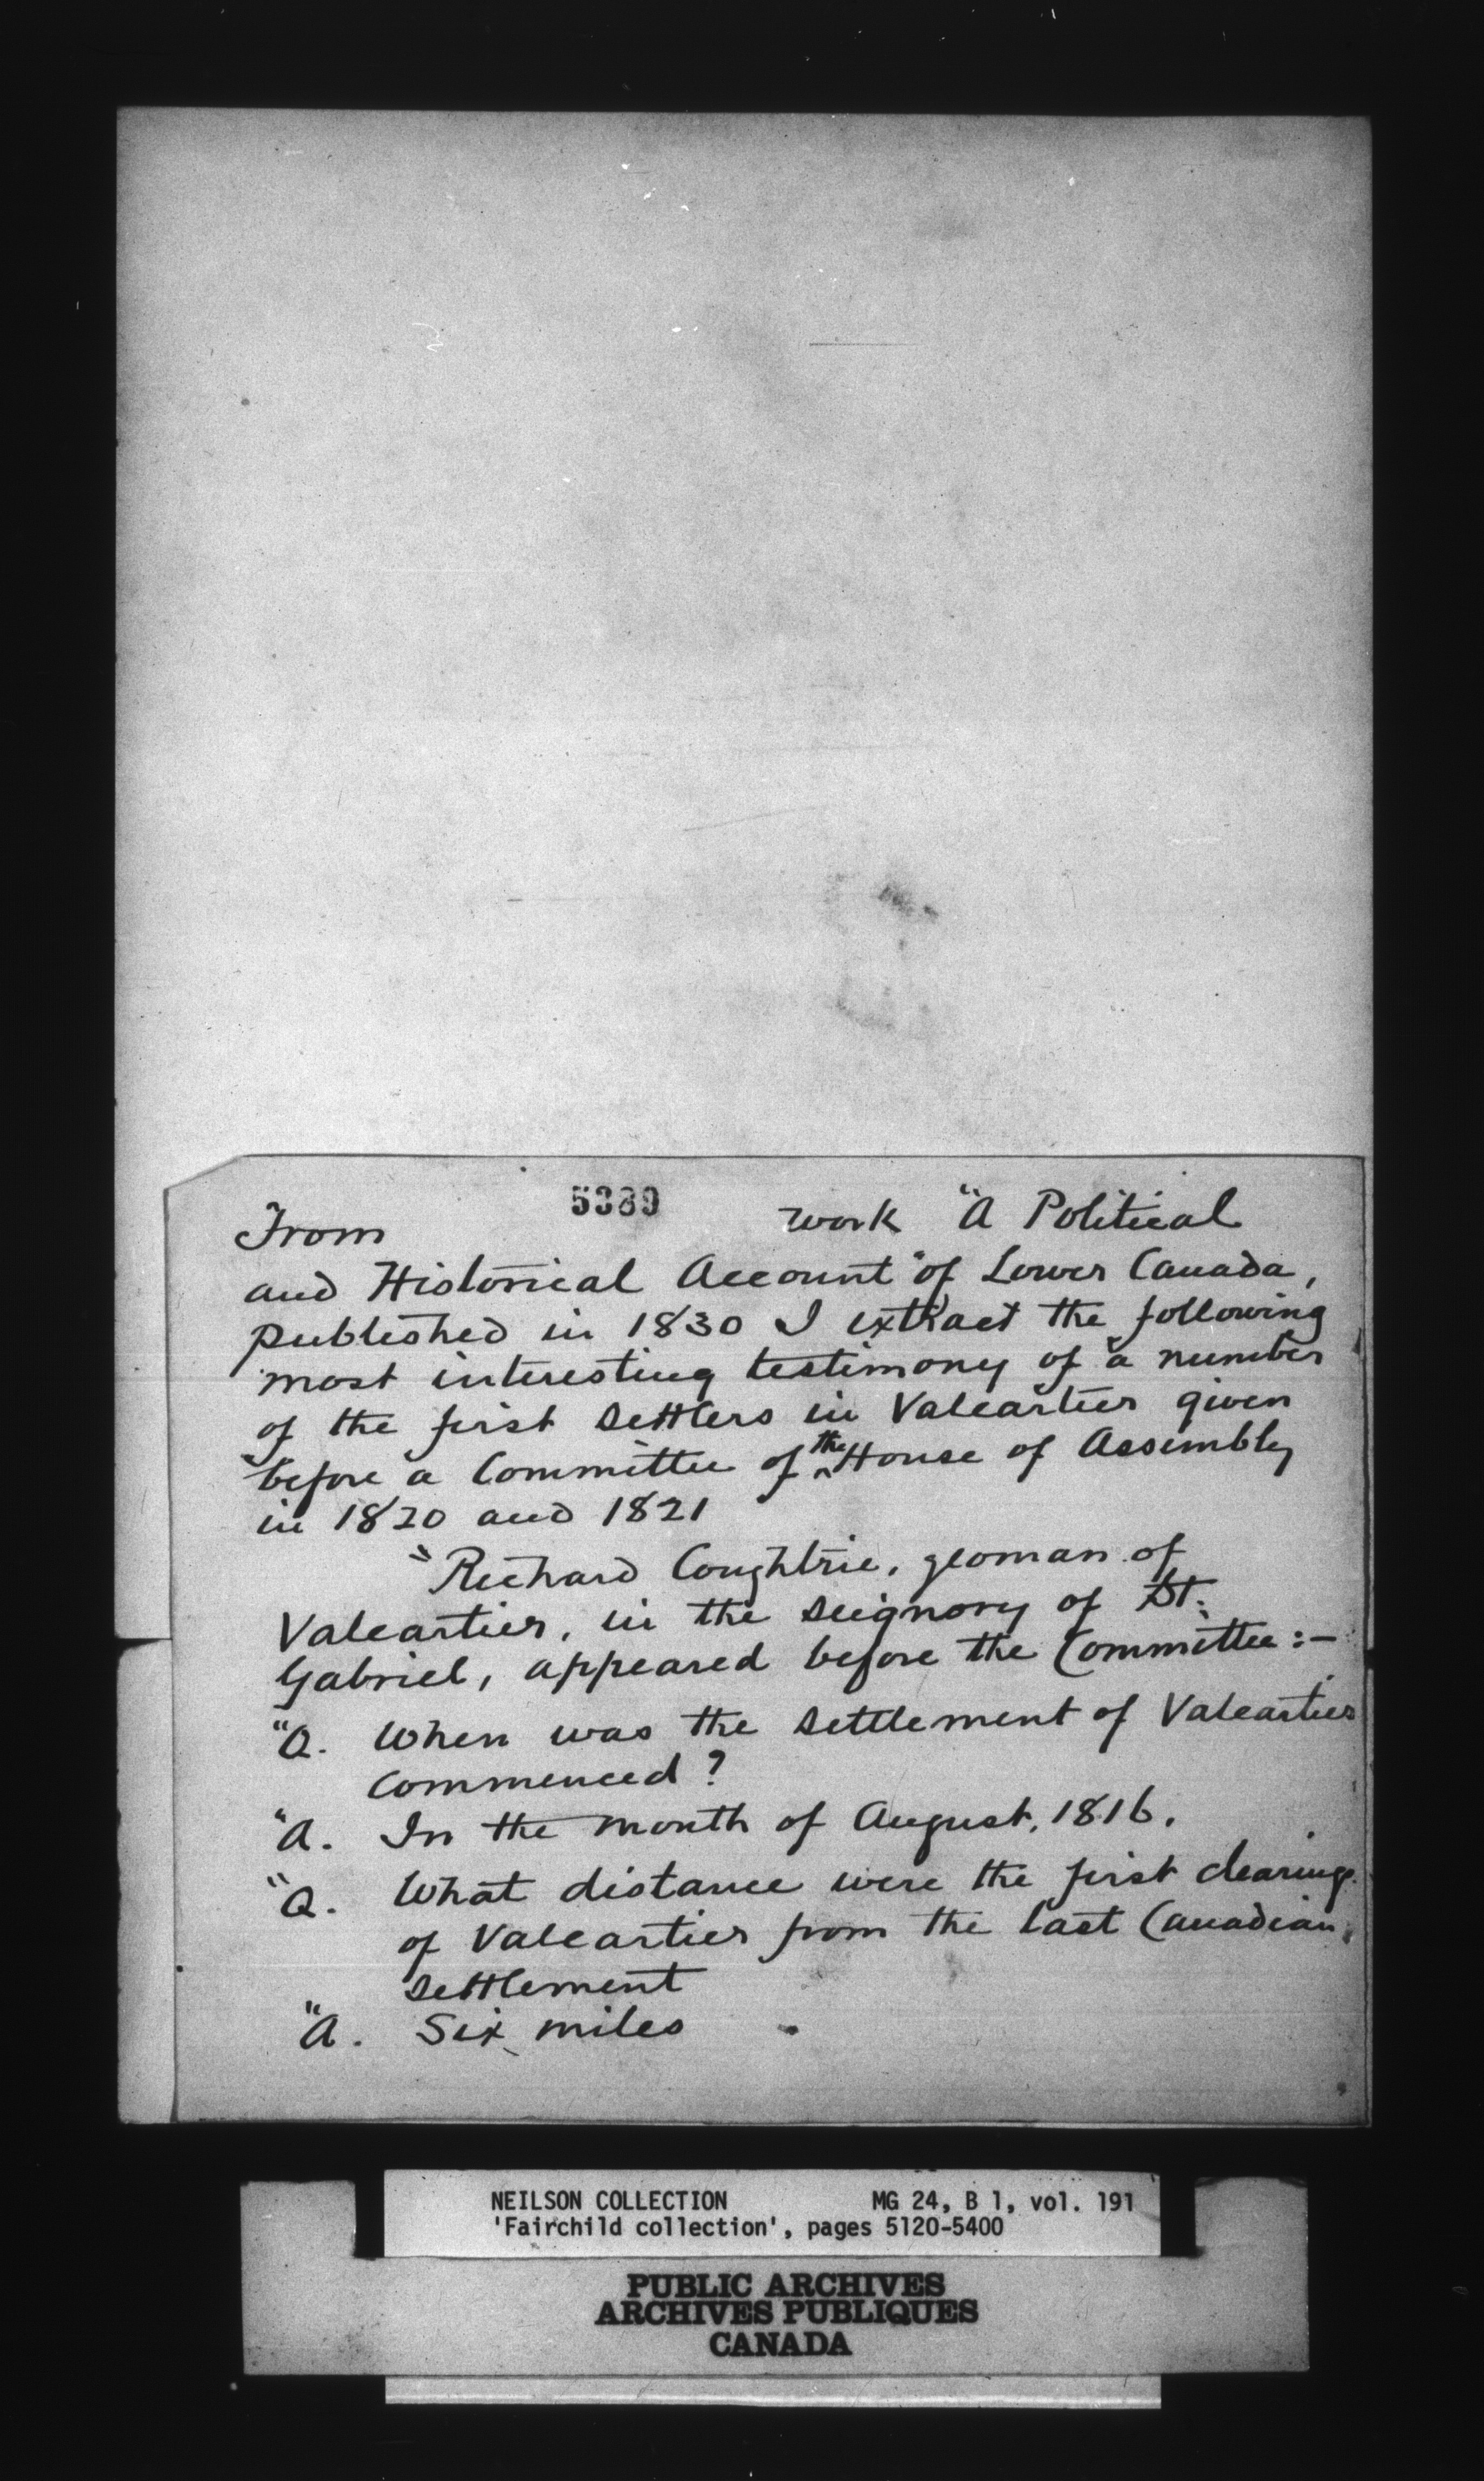 5389
From work "A Political
and Historical Account" of Lower Canada,
published in 1830 I extract the following
most interesting testimony of a number
of the first settlers in Valcartier given
before a Committee of the House of Assembly
in 1820 and 1821
"Richard Coughtrie, yeoman of
Valcartier, in the seignory of St.
Gabriel, appeared before the Committee:-
"Q. When was the settlement of Valcartier
commenced?
"A. In the month of August, 1816.
"Q. What distance were the first clearings
of Valcartier from the last Canadian
settlement
"A. Six miles
NEILSON COLLECTION MG 24, B 1, vol. 191
'Fairchild collection', pages 5120-5400
PUBLIC ARCHIVES
ARCHIVES PUBLIQUES
CANADA